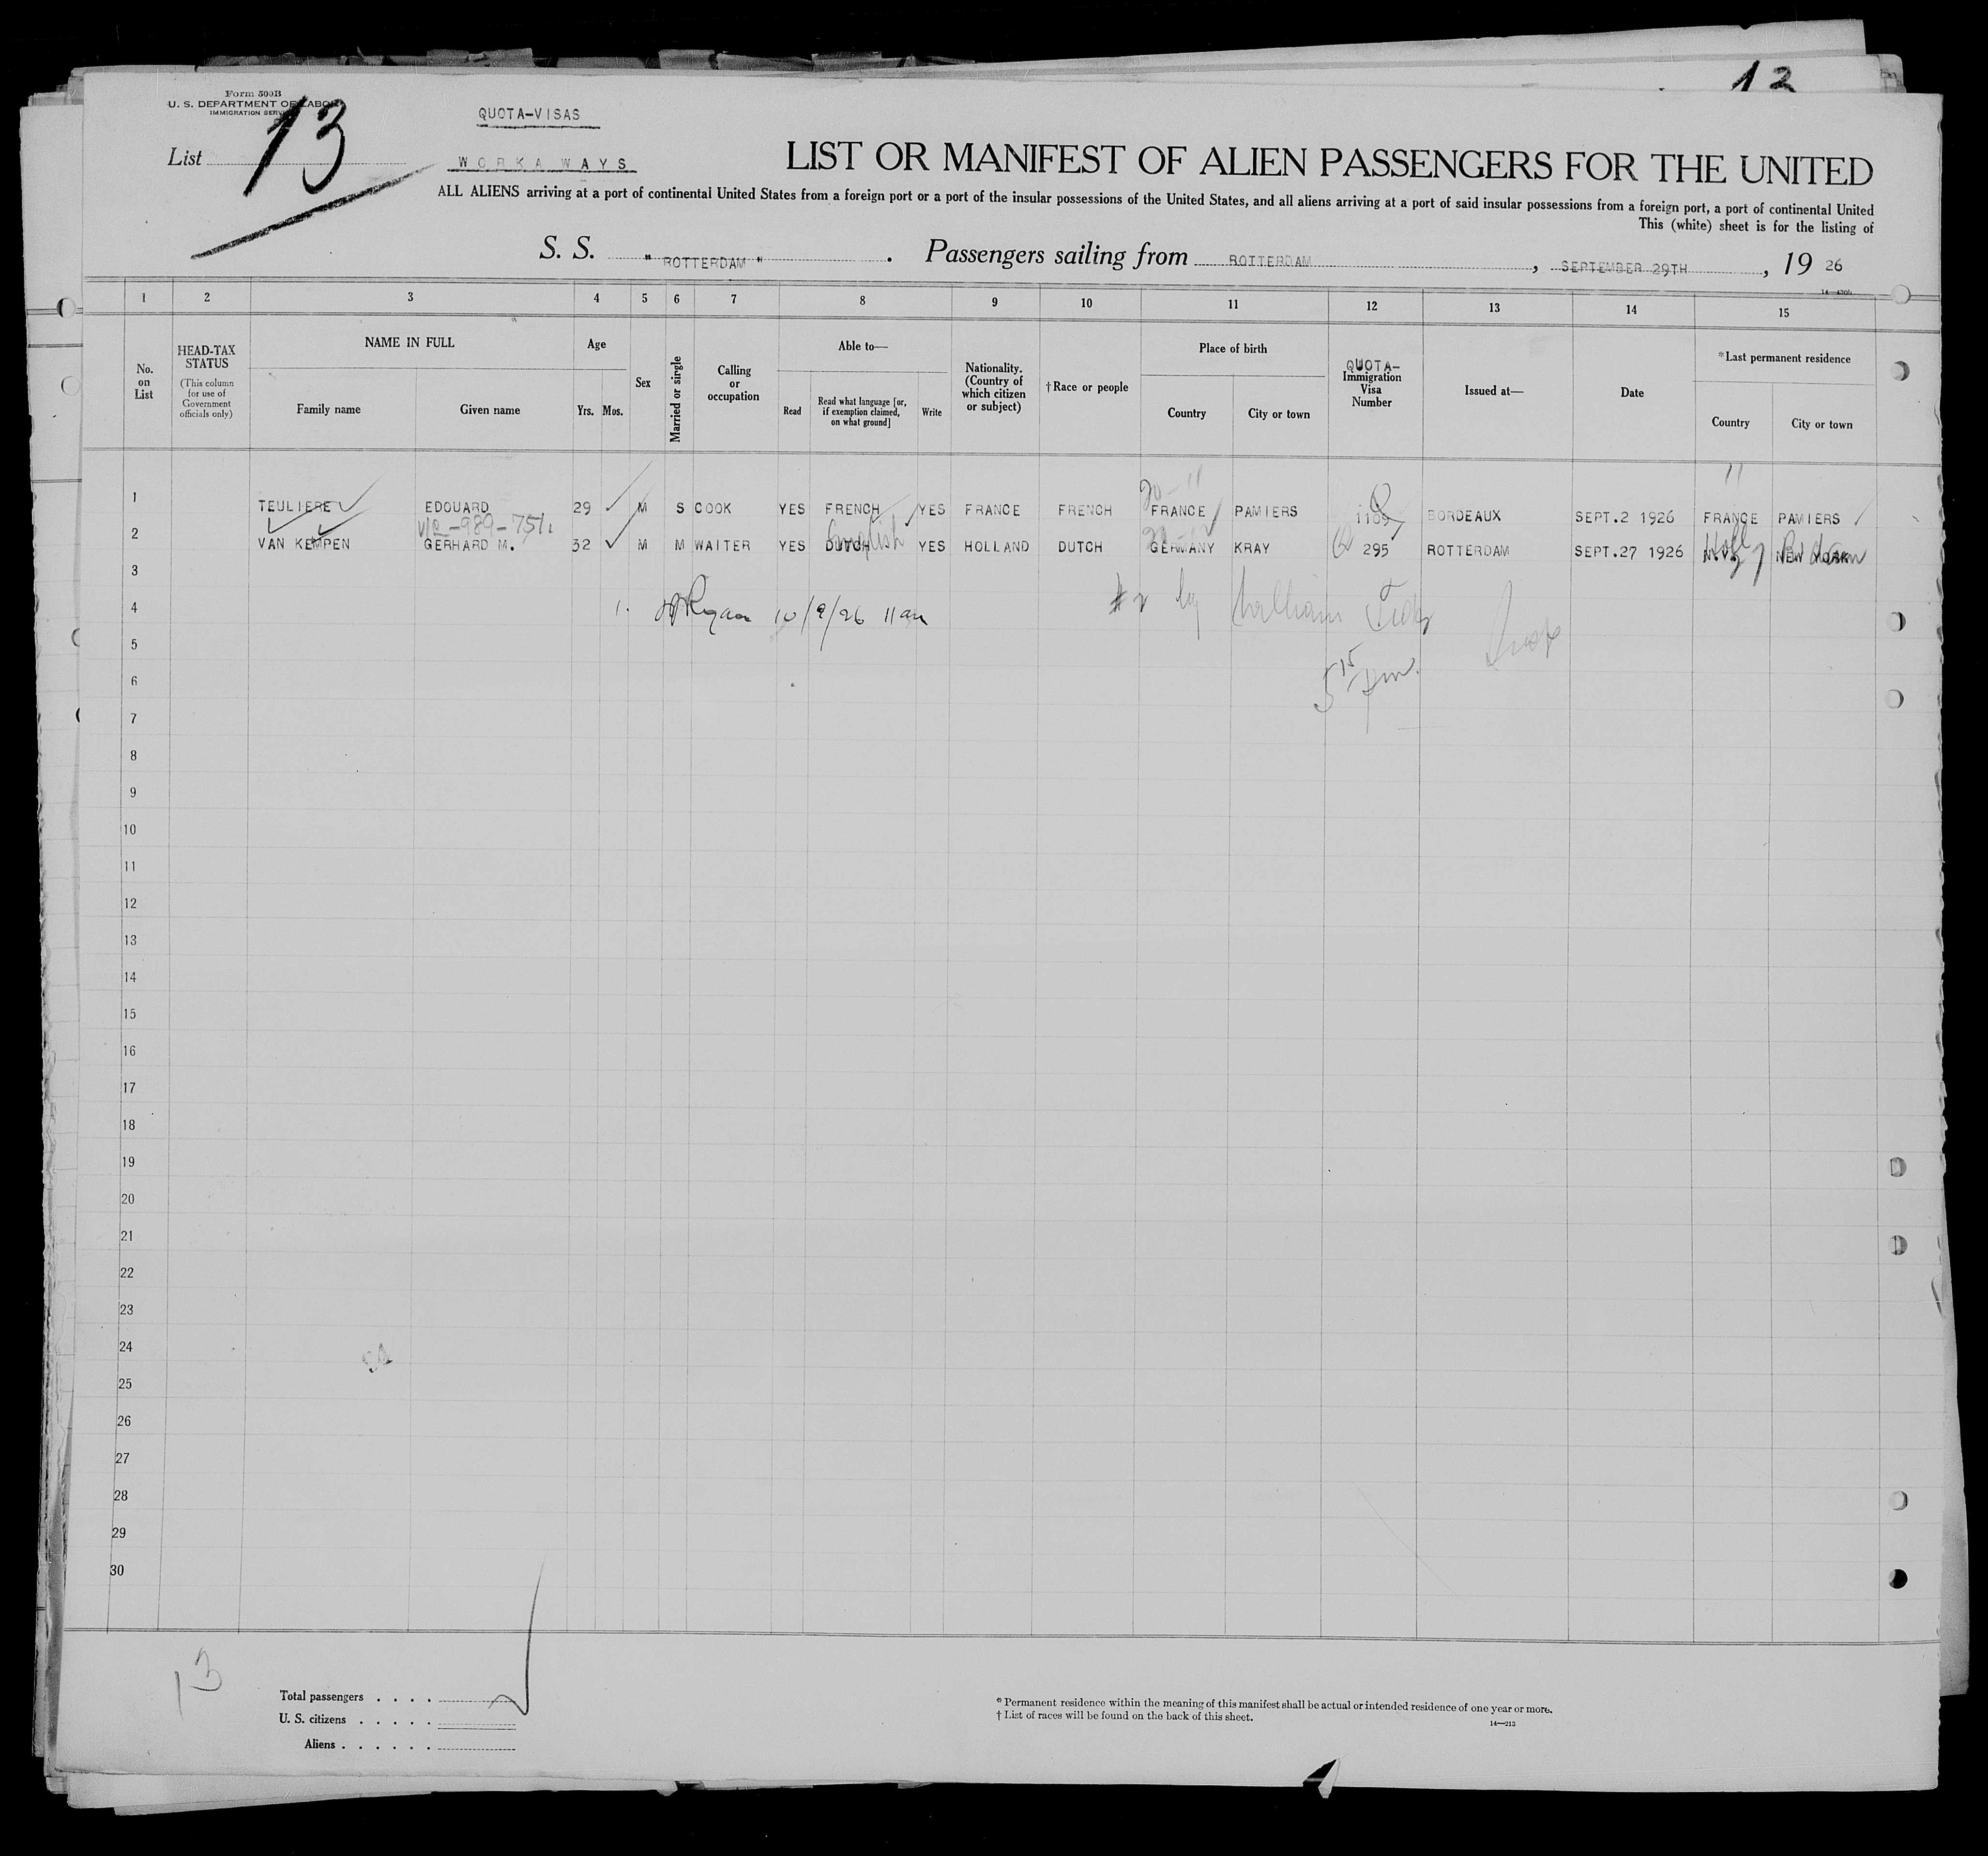 13
Form 500B
U. S. DEPARTMENT OF LABOR
IMMIGRATION SERVICE
QUOTA-VISAS
List 13
WORKAWAYS
LIST OR MANIFEST OF ALIEN PASSENGERS FOR THE UNITED
ALL ALIENS arriving at a port of continental United States from a foreign port or a port of the insular possessions of the United States, and all aliens arriving at a port of said insular possessions from a foreign port, a port of continental United
This (white) sheet is for the listing of
S. S. "ROTTERDAM". Passengers sailing from ROTTERDAM, SEPTEMBER 29TH, 19 26
1 2 3 4 5 6 7 8 9 10 11 12 13 14 15
No. on List
HEAD-TAX STATUS
(This column for use of Government officials only)
NAME IN FULL
Family name Given name
Age
Yrs. Mos.
Sex
Married or single
Calling or occupation
Able to—
Read
Read what language [or, if exemption claimed, on what ground]
Write
Nationality. (Country of which citizen or subject)
†Race or people
Place of birth
Country City or town
QUOTA-
Immigration Visa Number
Issued at—
Date
*Last permanent residence
Country City or town
20-11 11
1 TEULIERE EDOUARD 29 M S COOK YES FRENCH YES FRANCE FRENCH FRANCE PAMIERS 1109 BORDEAUX SEPT.2 1926 FRANCE PAMIERS
-989-751
English
2 VAN KEMPEN GERHARD M. 32 M M WAITER YES DUTCH YES HOLLAND DUTCH GERMANY KRAY 295 ROTTERDAM SEPT.27 1926 N.Y. NEW YORK
Holl
3
4 1. Ryan 10/9/26 11 am #2 by William
5
6 5 15 pm.
7
8
9
10
11
12
13
14
15
16
17
18
19
20
21
22
23
24
25
26
27
28
29
30
13
Total passengers . . . .
U. S. citizens . . . . .
Aliens . . . . . .
* Permanent residence within the meaning of this manifest shall be actual or intended residence of one year or more.
† List of races will be found on the back of this sheet.
14—213